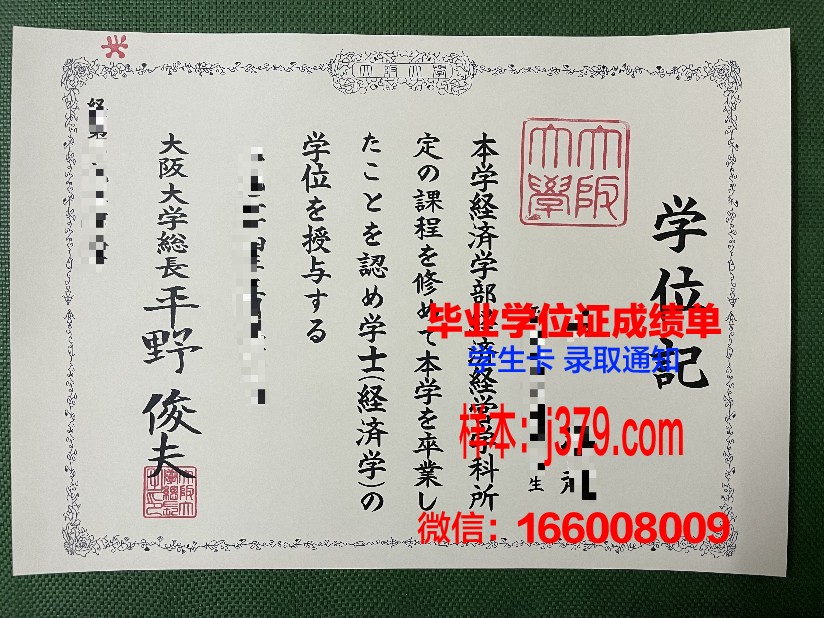 学位記
大阪大學
本学経済学部経済経営学科所
定の課程を修めて本学を卒業し
たことを認め学士(経済学)の
学位を授与する
大阪大学総長 平野俊夫
毕业学位证成绩单
学生卡 录取通知
样本:j379.com
微信:166008009